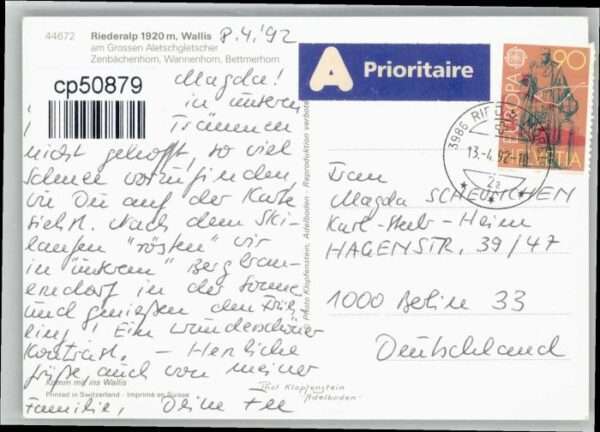 44672 Riederalp 1920 m, Wallis
am Grossen Aletschgletscher
Zenbächenhorn, Wannenhorn, Bettmerhorn
8.4.'92
A Prioritaire
EUROPA
90
HELVETIA
3986 RIED
13.-4.92-18
2a
cp50879
Magda!
in unseren
Träumen
nicht gehofft, so viel
Schnee vorzufinden
wie Du auf der Karte
siehst. Nach dem Ski-
laufen "rösten" wir
in "unserem" Bergbau-
erndorf in der Sonne
und genießen den Früh-
ling! Ein wunderschöner
Kontrast. - Herzliche
Grüße, auch von meiner
Familie, Deine
Frau
Magda SCHEUNCHEN
Kurt-Heim
HAGENSTR. 39/47
1000 Berlin 33
Deutschland
Photo Klopfenstein, Adelboden - Reproduktion verboten
Komm mit ins Wallis
Printed in Switzerland - Imprimé en Suisse
Phot Klopfenstein
Adelboden